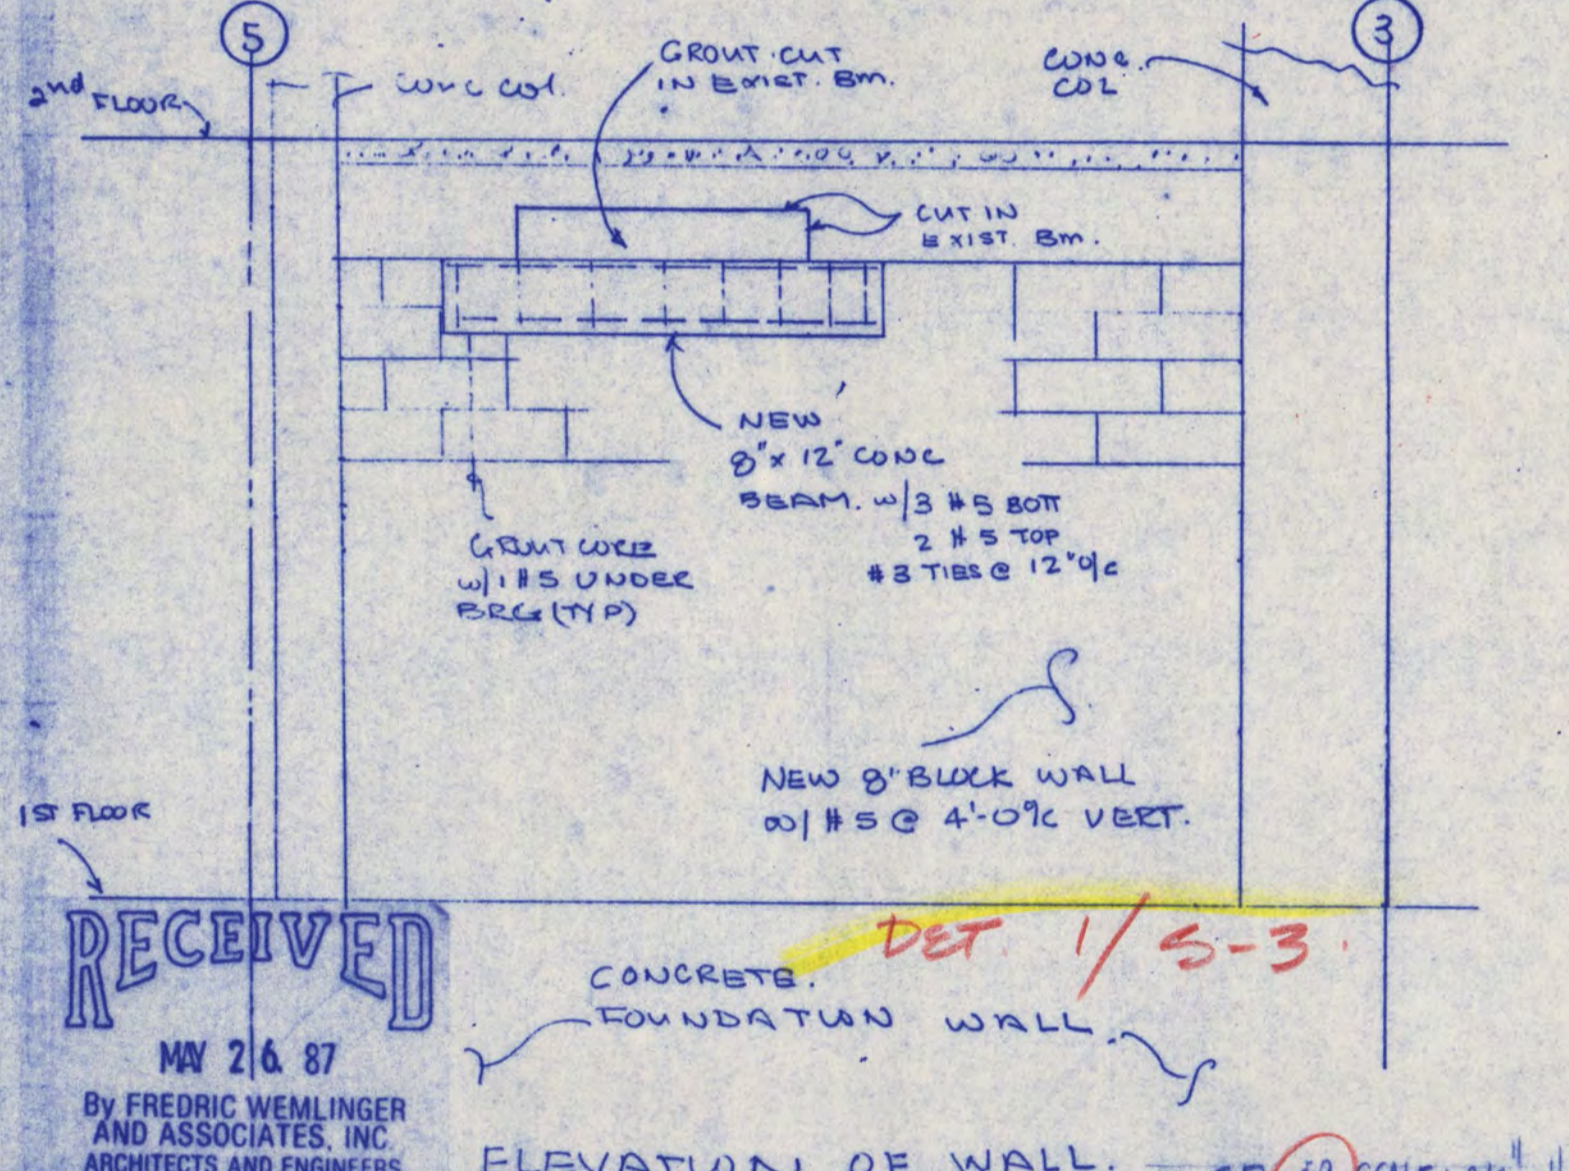 5
3
2nd FLOOR
CONC COL.
GROUT CUT
IN EXIST. Bm.
CONC.
COL
CUT IN
EXIST. Bm.
NEW
8"x 12" CONC
BEAM. w/3 #5 BOTT
2 #5 TOP
#3 TIES @ 12"O/C
GROUT CORE
w/1 #5 UNDER
BRG (TYP)
NEW 8" BLOCK WALL
w/ #5 @ 4'-0 O/C VERT.
1ST FLOOR
DET. 1/S-3
RECEIVED
MAY 26. 87
By FREDRIC WEMLINGER
AND ASSOCIATES, INC.
ARCHITECTS AND ENGINEERS
CONCRETE.
FOUNDATION WALL.
ELEVATION OF WALL.